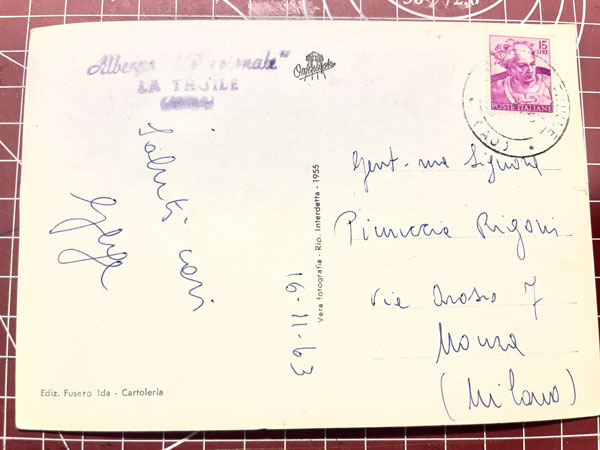 Albergo
LA THUILE
(AOSTA)
15
LIRE
POSTE ITALIANE
Saluti cari
16-11-63
Vera fotografia - Rip. Interdetta - 1955
Gent.ma Signora
Pinuccia Rigoni
Via Arosio 7
Monza
(Milano)
Ediz. Fusero Ida - Cartoleria